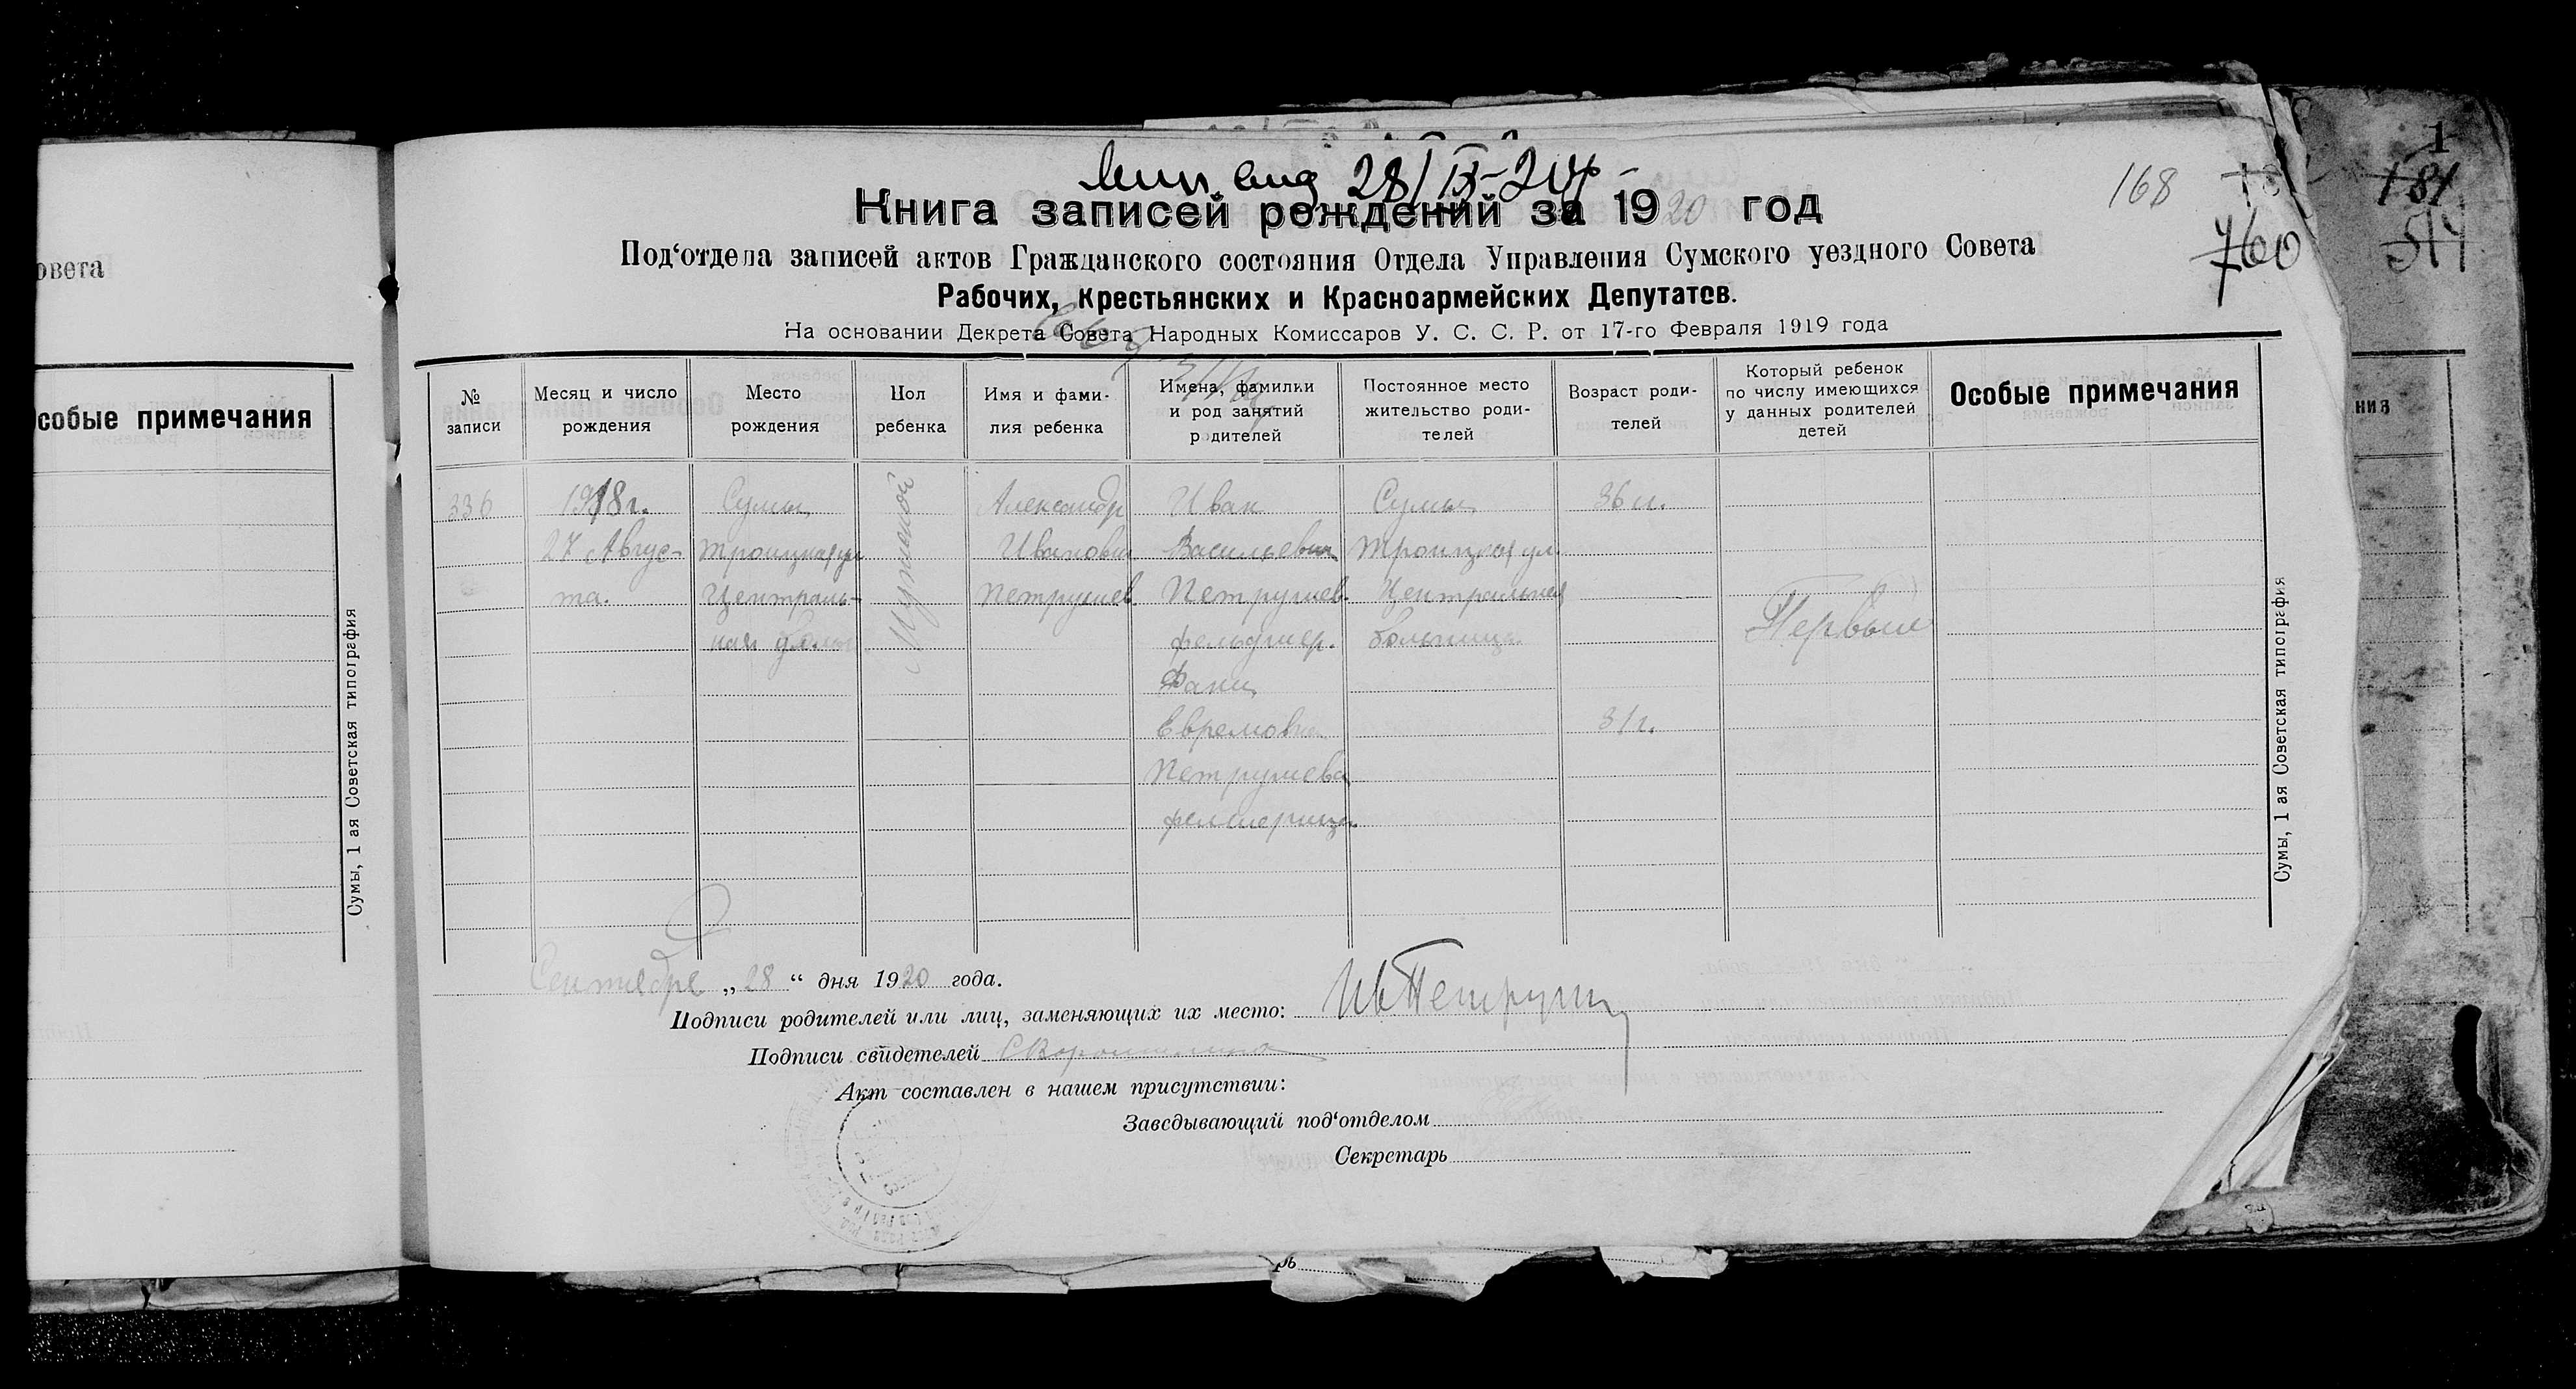 овета
собые примечания
Сумы, 1 ая Советская типография
28/IX-20 г
168
760
1
181
514
Книга записей рождений за 1920 год
Под‘отдела записей актов Гражданского состояния Отдела Управления Сумского уездного Совета
Рабочих, Крестьянских и Красноармейских Депутатов.
На основании Декрета Совета Народных Комиссаров У. С. С. Р. от 17-го Февраля 1919 года
№ записи
Месяц и число рождения
Место рождения
Пол ребенка
Имя и фами-
лия ребенка
Имена, фамилии
и род занятий
родителей
Постоянное место
жительство роди-
телей
Возраст роди-
телей
Который ребенок
по числу имеющихся
у данных родителей
детей
Особые примечания
336
1918 г.
27 Авгус-
та.
Сумы,
Троицкая ул
Централь-
ная
Мужской
Александр
Иванович
Петрушев
Иван
Васильевич
Петрушев.
фельдшер.
Фаня
Ефремовна
Петрушева
фельшерица.
Сумы,
Троицкая ул.
Центральная
больница.
36 л.
31 г.
Первый
Сумы, 1 ая Советская типография
Сентября „28“ дня 1920 года.
Подписи родителей или лиц, заменяющих их место: Ив Петруш
Подписи свидетелей
Акт составлен в нашем присутствии:
Заведывающий под‘отделом
Секретарь